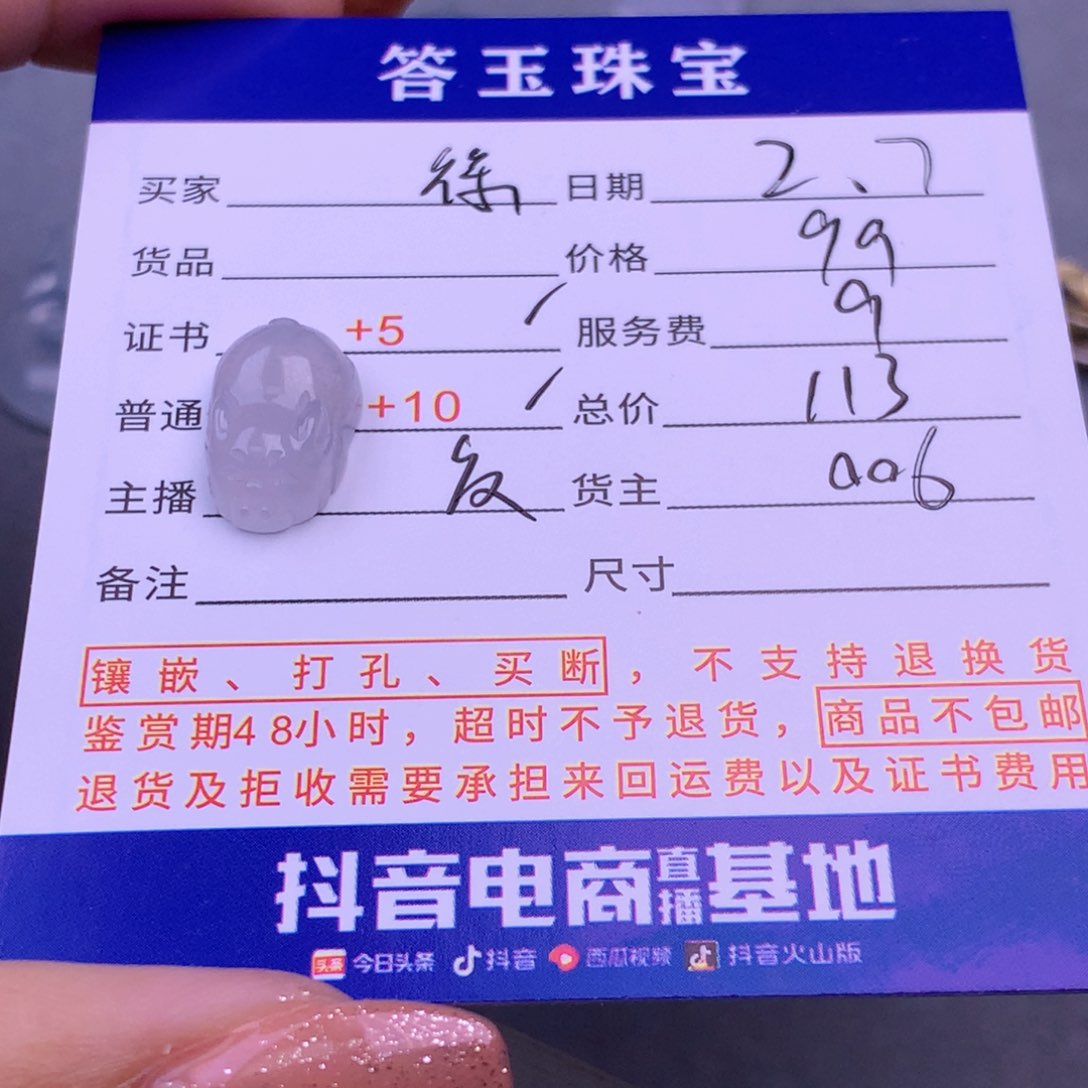 答玉珠宝
买家 徐 日期 2、7
货品 价格 99
证书 +5 / 服务费 9
普通 +10 / 总价 113
主播 货主 006
备注 尺寸
镶嵌、打孔、买断，不支持退换货
鉴赏期48小时，超时不予退货，商品不包邮
退货及拒收需要承担来回运费以及证书费用
抖音电商直播基地
头条 今日头条 抖音 西瓜视频 抖音火山版